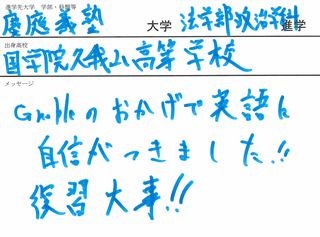 進学先大学 学部・科類等
慶應義塾 大学 法学部政治学科 進学
出身高校
国学院久我山高等学校
メッセージ
Gnobleのおかげで英語に
自信がつきました!!
復習大事!!